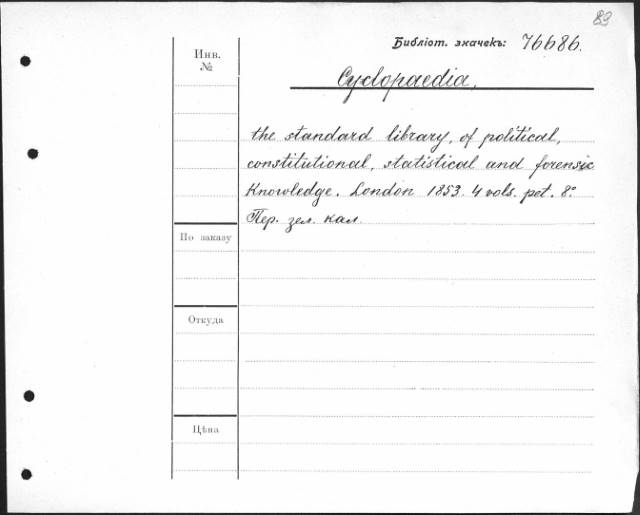 83
Библіот. значекъ: 76686.
Инв.
№
Cyclopaedia,
the standard library, of political,
constitutional, statistical and forensic
Knowledge. London 1853. 4 vols. pet. 8º
Пер. зел. кал.
По заказу
Откуда
Цѣна